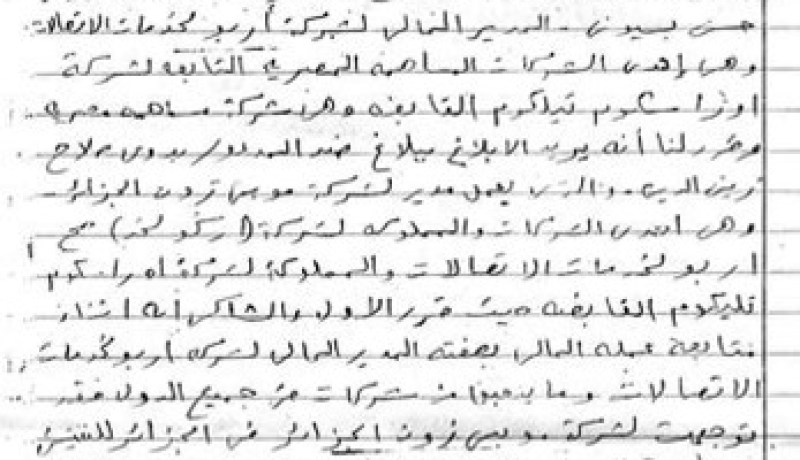 حسن بسيونى - المدير المالى لشركة أربو لخدمات الاتصالات
وهى إحدى الشركات المساهمة المصرية التابعة لشركة
اوراسكوم تيلكوم القابضه وهى شركة مساهمه مصريه
وقرر لنا أنه يريد الابلاغ ببلاغ ضد المدعو / بدوى صلاح
زين الدين - والذى يعمل مدير لشركة موبى زون الجزائر
وهى احدى الشركات والمملوكه لشركة (اركو لخد) صح
اربو لخدمات الاتصالات والمملوكة لشركة اوراسكوم
تليكوم القابضه حيث قرر الأول والشاكى انه اثناء
متابعة عمله المالى بصفته المدير المالى لشركه اربو لخدمات
الاتصالات وما يتبعها من شركات فى جميع الدول فقد
توجهت لشركة موبى زون الجزائر فى الجزائر للتفتيش